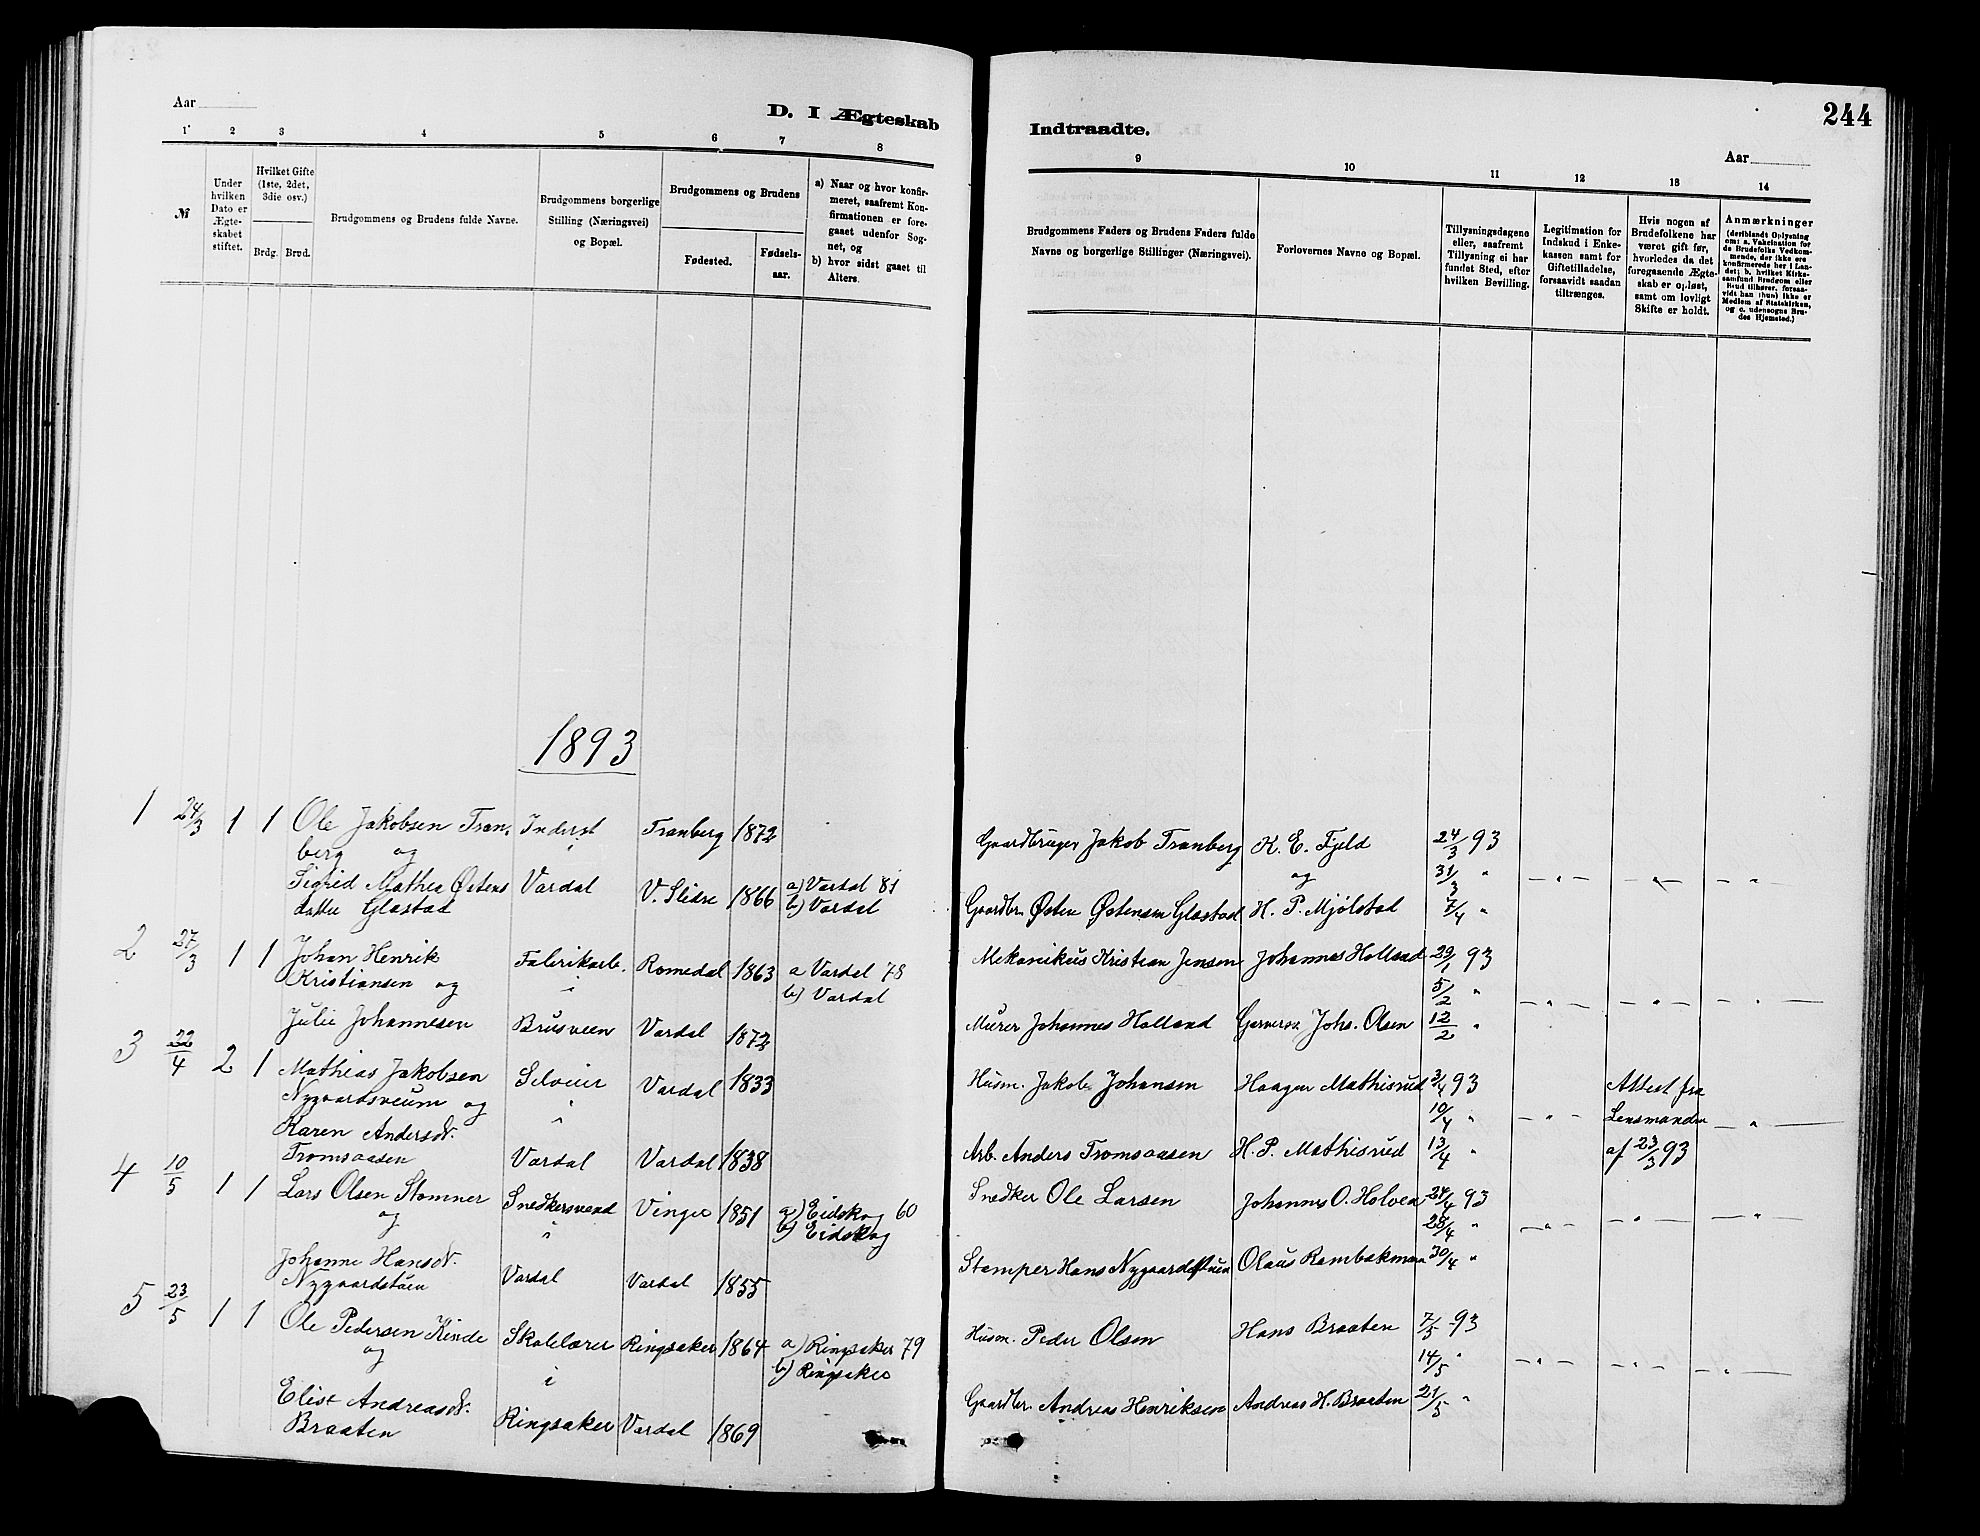 Aar
D. I Ægteskab
1 2 3 4 5 6 7 8
№
Under hvilken Dato er Ægteskabet stiftet.
Hvilket Gifte (1ste, 2det, 3die osv.)
Brdg. Brud.
Brudgommens og Brudens fulde Navne.
Brudgommens borgerlige Stilling (Næringsvei) og Bopæl.
Brudgommens og Brudens
Fødested. Fødsels-aar.
a) Naar og hvor konfir-
meret, saafremt Kon-
firmationen er fore-
gaaet udenfor Sog-
net, og
b) hvor sidst gaaet til
Alters.
1893
1 24/3 1 1 Ole Jakobsen Tran- Inderst Tranberg 1872
berg og i
Sigrid Mathea Østens Vardal V. Slidre 1866 a) Vardal 81
datter Glæstad b) Vardal
2 27/3 1 1 Johan Henrik Fabrikarb. Romedal 1863 a Vardal 78
Kristiansen og i b) Vardal
Julie Johannesen Brusveen Vardal 1872
3 22/4 2 1 Mathias Jakobsen Selveier Vardal 1833
Nygaardsveum og i
Karen Andersdr.
Tromsaasen Vardal Vardal 1838
4 10/5 1 1 Lars Olsen Stomner Snedkersvend Vinger 1851 a) Eidskog 60
og i b) Eidskog
Johanne Hansdr.
Nygaardstuen Vardal Vardal 1855
5 23/5 1 1 Ole Pedersen Kinde Skolelærer Ringsaker 1864 a) Ringsaker 79
og i b) Ringsaker
Elise Andreasdr.
Braaten Ringsaker Vardal 1869
Indtraadte.
244
Aar
9 10 11 12 13 14
Brudgommens Faders og Brudens Faders fulde
Navne og borgerlige Stillinger (Næringsvei).
Forlovernes Navne og Bopæl.
Tillysningsdagene
eller, saafremt
Tillysning ei har
fundet Sted, efter
hvilken Bevilling.
Legitimation for
Indskud i Enke-
kassen samt for
Giftetilladelse,
forsaavidt saadan
tiltrænges.
Hvis nogen af
Brudefolkene har
været gift før,
hvorledes da det
foregaaende Ægte-
skab er opløst,
samt om lovligt
Skifte er holdt.
Anmærkninger
(deriblandt Oplysning
om: a. Vakcination for
de Brudefolks Vedkom-
mende, der ikke ere
konfirmerede her i Lan-
det; b. hvilket Kirke-
samfund Brudgom eller
Brud tilhører, forsaa-
vidt han (hun) ikke er
Medlem af Statskirken,
og c. udensogns Bru-
des Hjemsted.)
Gaardbruger Jakob Tranberg K. E. Fjeld 24/3 93
og 31/3 "
Gaardbr. Østen Østensen Glæstad H. P. Mjölstad 7/4 "
Mekanikus Kristian Jensen Johannes Holland 29/1 93
5/2 "
Murer Johannes Holland Garversv. Johs. Olsen 12/2 "
Husm. Jakob Johansen Haagen Mathisrud 3/4 93 Attest fra
10/4 " Lensmanden
Arb. Anders Tromsaasen H. P. Mathisrud 13/4 " af 23/3 93
Snedker Ole Larsen Johannes O. Holven 24/4 93
28/4 "
Stamper Hans Nygaardstuen Olaus Rambækmoen 30/4 "
Husm. Peder Olsen Hans Braaten 7/5 93
14/5 "
Gaardbr. Andreas Henriksen Andreas H. Braaten 21/5 "